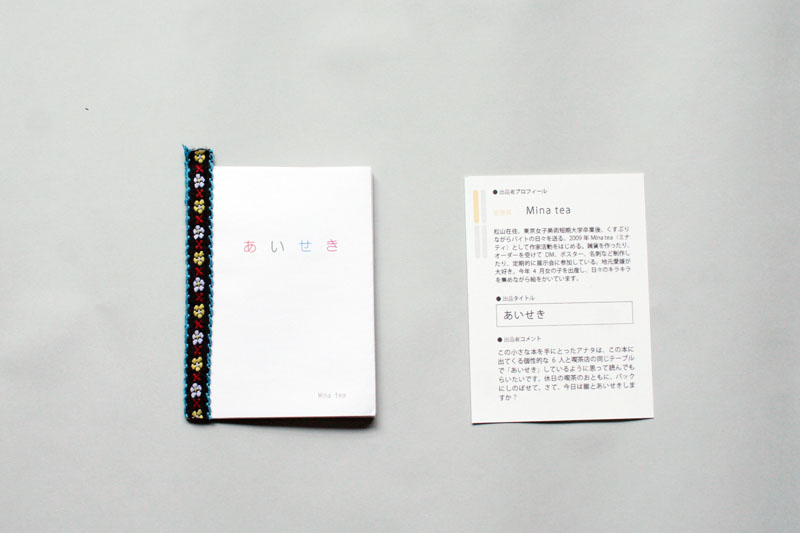 あいせき
Mina tea
● 出品者プロフィール
愛媛県 Mina tea
松山在住。東京女子美術短期大学卒業後、くすぶり
ながらバイトの日々を送る。2009 年 Mina tea（ミナ
ティ）として作家活動をはじめる。雑貨を作ったり、
オーダーを受けて DM、ポスター、名刺など制作し
たり、定期的に展示会に参加している。地元愛媛が
大好き。今年 4 月女の子を出産し、日々のキラキラ
を集めながら絵をかいています。
● 出品タイトル
あいせき
● 出品者コメント
この小さな本を手にとったアナタは、この本に
出てくる個性的な 6 人と喫茶店の同じテーブル
で「あいせき」しているように思って読んでも
らいたいです。休日の喫茶のおともに、バック
にしのばせて、さて、今日は誰とあいせきしま
すか？